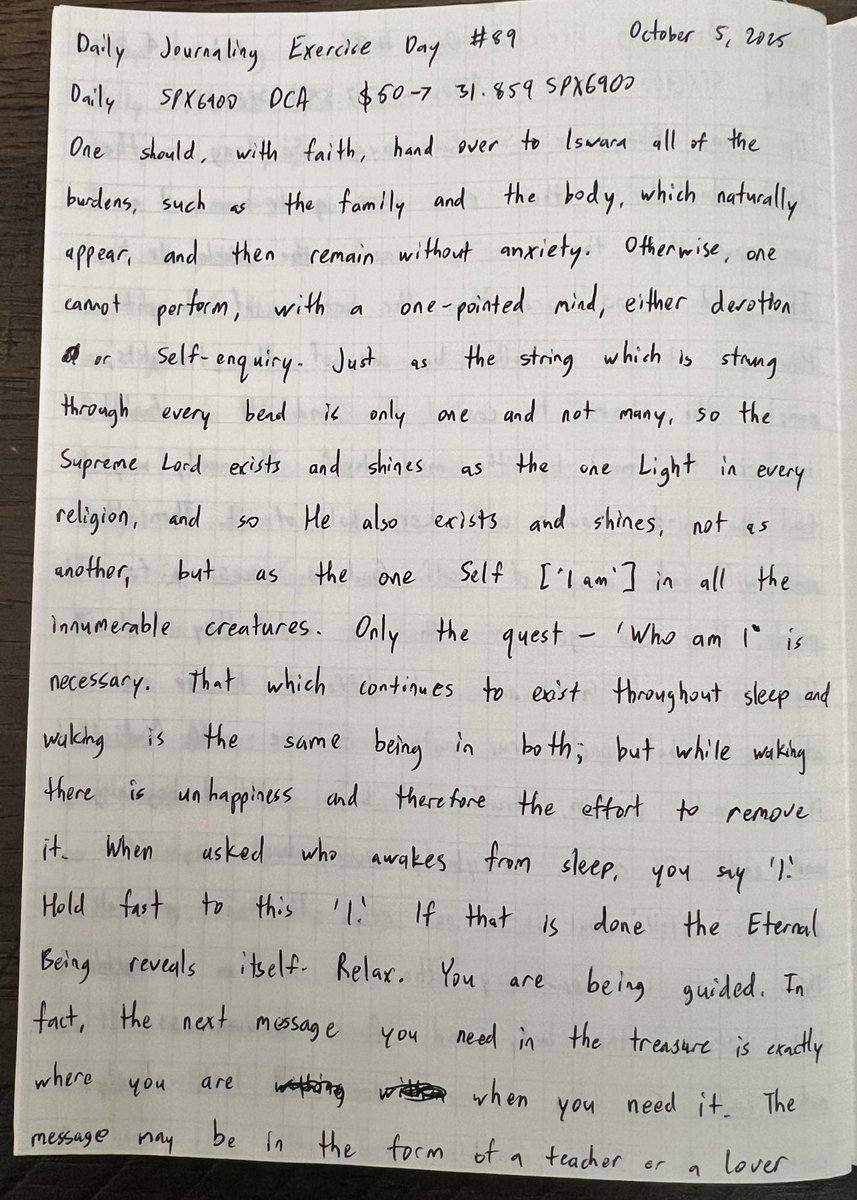 Daily Journaling Exercise Day #89 October 5, 2025
Daily SPX6900 DCA $50→ 31.859 SPX6900
One should, with faith, hand over to Iswara all of the
burdens, such as the family and the body, which naturally
appear, and then remain without anxiety. Otherwise, one
cannot perform, with a one-pointed mind, either devotion
or Self-enquiry. Just as the string which is strung
through every bead is only one and not many, so the
Supreme Lord exists and shines as the one Light in every
religion, and so He also exists and shines, not as
another, but as the one Self ['I am'] in all the
innumerable creatures. Only the quest - 'Who am I" is
necessary. That which continues to exist throughout sleep and
waking is the same being in both; but while waking
there is unhappiness and therefore the effort to remove
it. When asked who awakes from sleep, you say 'I.'
Hold fast to this 'I.' If that is done the Eternal
Being reveals itself. Relax. You are being guided. In
fact, the next message you need in the treasure is exactly
where you are when you need it. The
message may be in the form of a teacher or a lover